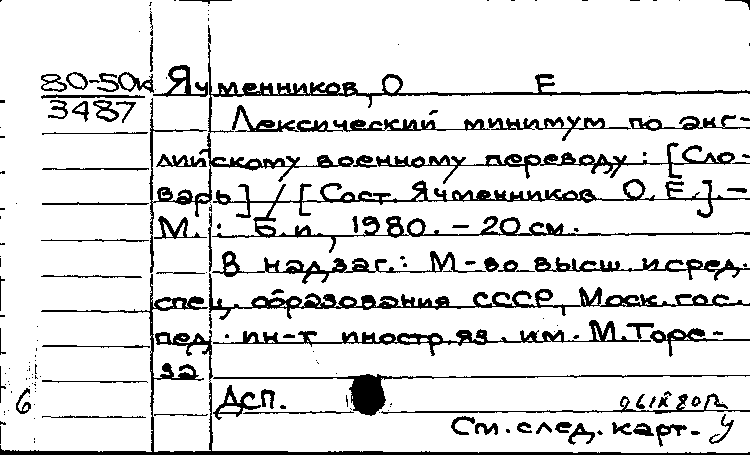 80-50к
3487
Ячменников, О Е
Лексический минимум по анг-
лийскому военному переводу: [Сло-
варь] / [Сост. Ячменников О.Е.]. –
М.: Б.и., 1980. – 20 см.
В надзаг.: М-во высш. и сред.
спец. образования СССР, Моск. гос.
пед. ин-т иностр. яз. им. М. Торе-
за
Дсп.
6
См. след. карт.